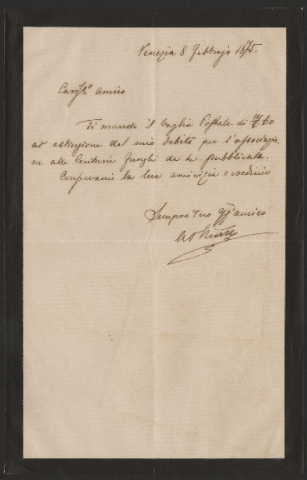 Venezia 8 Febbrajo 1875.
Cariss.º amico
Ti mando il Vaglia Postale di 60
ad estinzione del mio debito per l'associazio
ne alla Funghi da te pubblicata.
Conservami la tua amicizia e credimi
Sempre Tuo amico